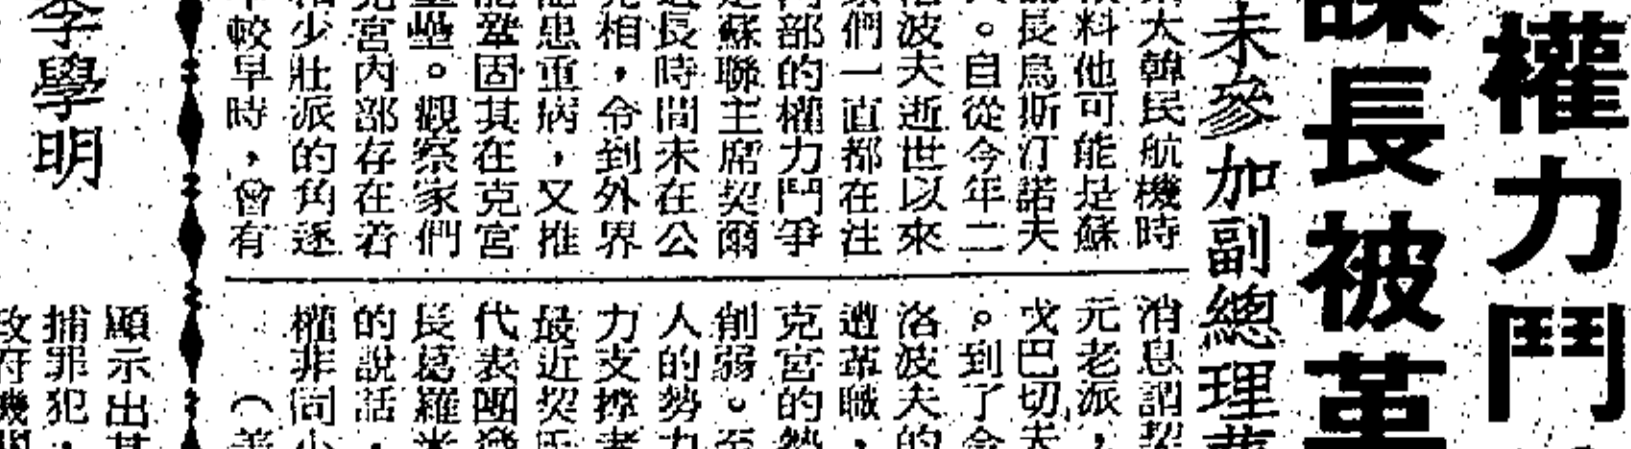 權力鬥
謀長被革
未參加副總理葬
大韓民航機時
料他可能是蘇
長烏斯汀諾夫
。自從今年二
波夫逝世以來
們一直都在注
部的權力鬥爭
蘇聯主席契爾
長時間未在公
相，令到外界
患重病，又推
鞏固其在克宮
壘。觀察家們
宮內部存在着
少壯派的角逐
較早時，曾有
消息謂契
元老派，
戈巴切夫
。到了今
洛波夫的
遭革職，
克宮的勢
削弱。至
人的勢力
力支撐者
最近契氏
代表團發
長葛羅米
的說話，
權非同小
（美
李學明
顯示出其
捕罪犯，
政府機關